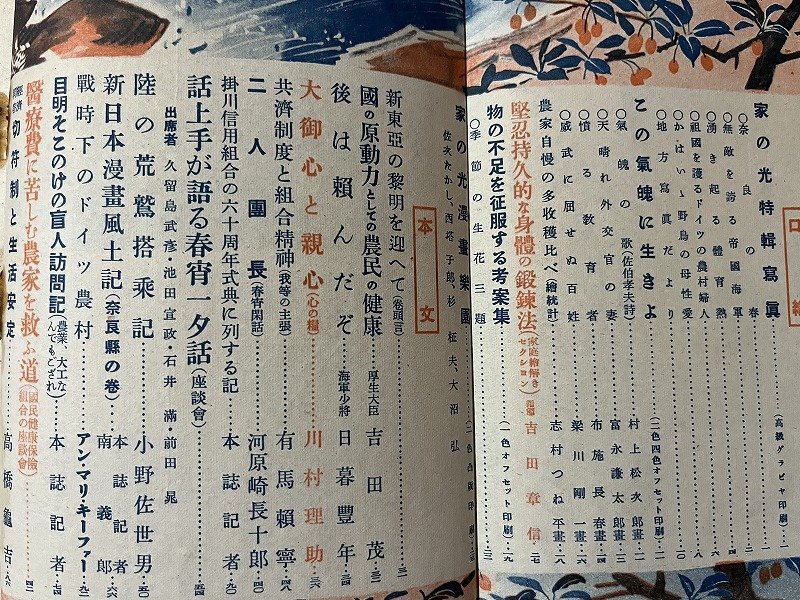 口繪
家の光特輯寫眞……(高級グラビヤ印刷)
○奈良の春……一
○無敵を誇る帝國海軍……二
○湧き起る體育熱……四
○祖國を護るドイツの農村婦人……六
○かはいゝ野鳥の母性愛……八
○地方寫眞だより……一〇
この氣魄に生きよ……(二色四色オフセット印刷)…一一
○氣魄の歌(佐伯孝夫詩)……村上松次郎畫
○天晴れ外交官の妻……富永謙太郎畫
○憤る敎育者……布施長春畫
○威武に屈せぬ百姓……梁川剛一畫
農家自慢の多收穫比べ(繪統計)……志村つね平畫…一八
堅忍持久的な身體の鍛鍊法(家庭繪解きセクシヨン)……吉田章信…二七
物の不足を征服する考案集……(一色オフセット印刷)…一九
○季節の生花三題……三
家の光漫畫樂園……(二色凸版印刷)
佐次たかし、西塔子郎、杉柾夫、大沼弘
本文
新東亞の黎明を迎へて(卷頭言)……三一
國の原動力としての農民の健康……厚生大臣 吉田茂…三二
後は賴んだぞ……海軍少將 日暮豐年…三四
大御心と親心(心の糧)……川村理助…三六
共濟制度と組合精神(我等の主張)……有馬賴寧…四八
二人團長(春宵閑話)……河原崎長十郎…四〇
掛川信用組合の六十周年式典に列する記……本誌記者…九〇
話上手が語る春宵一夕話(座談會)……五四
出席者 久留島武彥・池田宣政・石井滿・前田晁
陸の荒鷲搭乘記……小野佐世男…五〇
新日本漫畫風土記(奈良縣の卷)……本誌記者 南義郎…六六
戰時下のドイツ農村……アン・マリ・キーファー…九二
目明そこのけの盲人訪問記(農業、大工なんでもござれ)……本誌記者…八〇
醫療費に苦しむ農家を救ふ道(國民健康保險組合の座談會)……四二
切符制と生活安定……高橋龜吉…八六